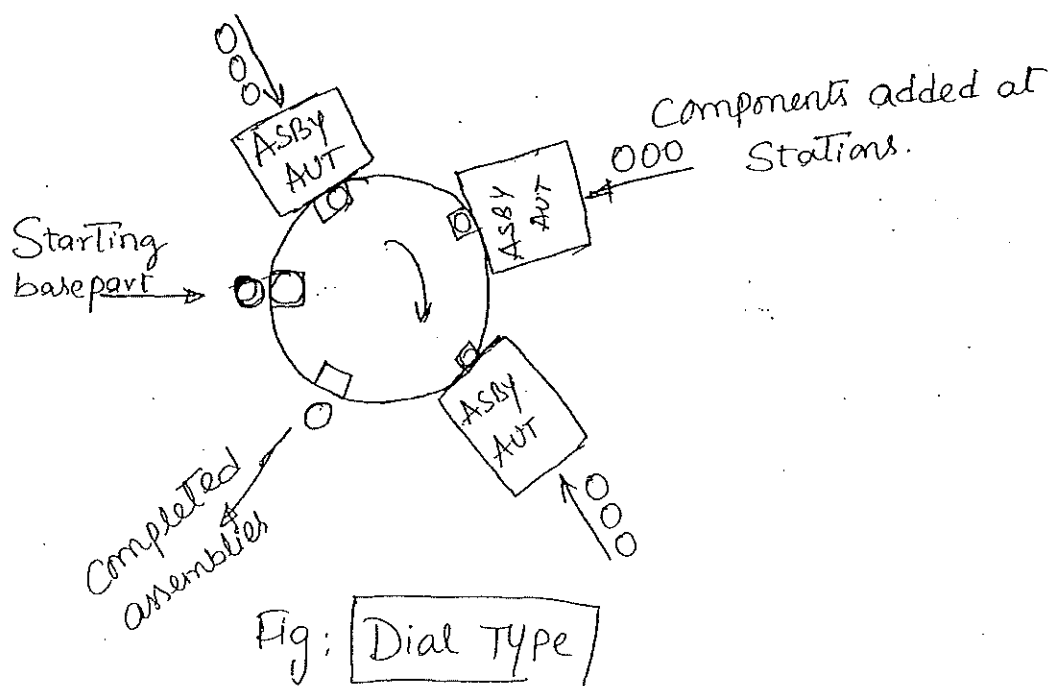 ASBY
AUT
Components added at
Stations.
ASBY
AUT
Starting
basepart
ASBY
AUT
Completed
assemblies
Fig: Dial TYPE